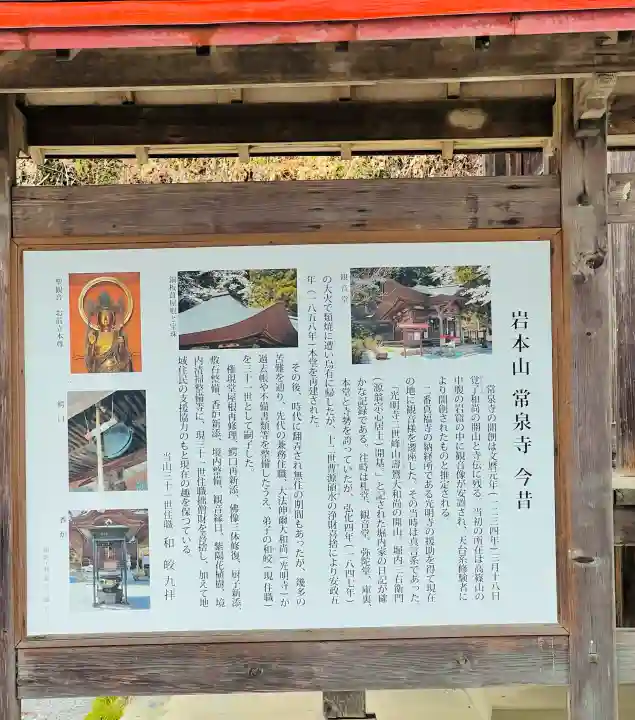 岩本山 常泉寺 今昔
常泉寺の開創は文暦元年(一二三四年)三月十八日
覚了和尚の開山と寺伝に残る。当初の所在は高篠山の
中腹の岩窟の中に観音像が安置され、天台系修験者に
より開創されたものと推定される。
二番真福寺の納経所である光明寺の援助を得て現在
の地に観音様を遷座した。その当時は真言系であった。
『光明寺三世峰山壽鷟大和尚の開山、堀内二右衛門
(源翁宗心居士)開基。』と記された堀内家の日記が確
かな記録である。往時は札堂、観音堂、弥陀堂、庫裏、
本堂と寺勢を誇っていたが、弘化四年(一八四七年)
の大火で類焼に遭い烏有に帰したが、十二世曹源碩水の浄財喜捨により安政五
年(一八五八年)本堂を再建された。
その後、時代に翻弄され無住の期間もあったが、幾多の
苦難を通り、先代の兼務住職、大法伸爾大和尚(光明寺)が
過去帳や不備書類等を整備したうえ、弟子の和皎(現住職)
を三十一世として嗣子した。
権現堂屋根再修理、鰐口再新添、佛像三体修復、厨子新添、
敷石整備、香炉新添、境内整備、観音縁日、紫陽花植樹、境
内清掃整備等に、現三十一世住職拙僧財を喜捨し、加えて地
域住民の支援協力のもと現在の趣を保つている。
当山三十一世住職 和 皎 九拝
観音堂
銅板葺屋根と宝珠
聖観音 お前立本尊
鰐口
香炉